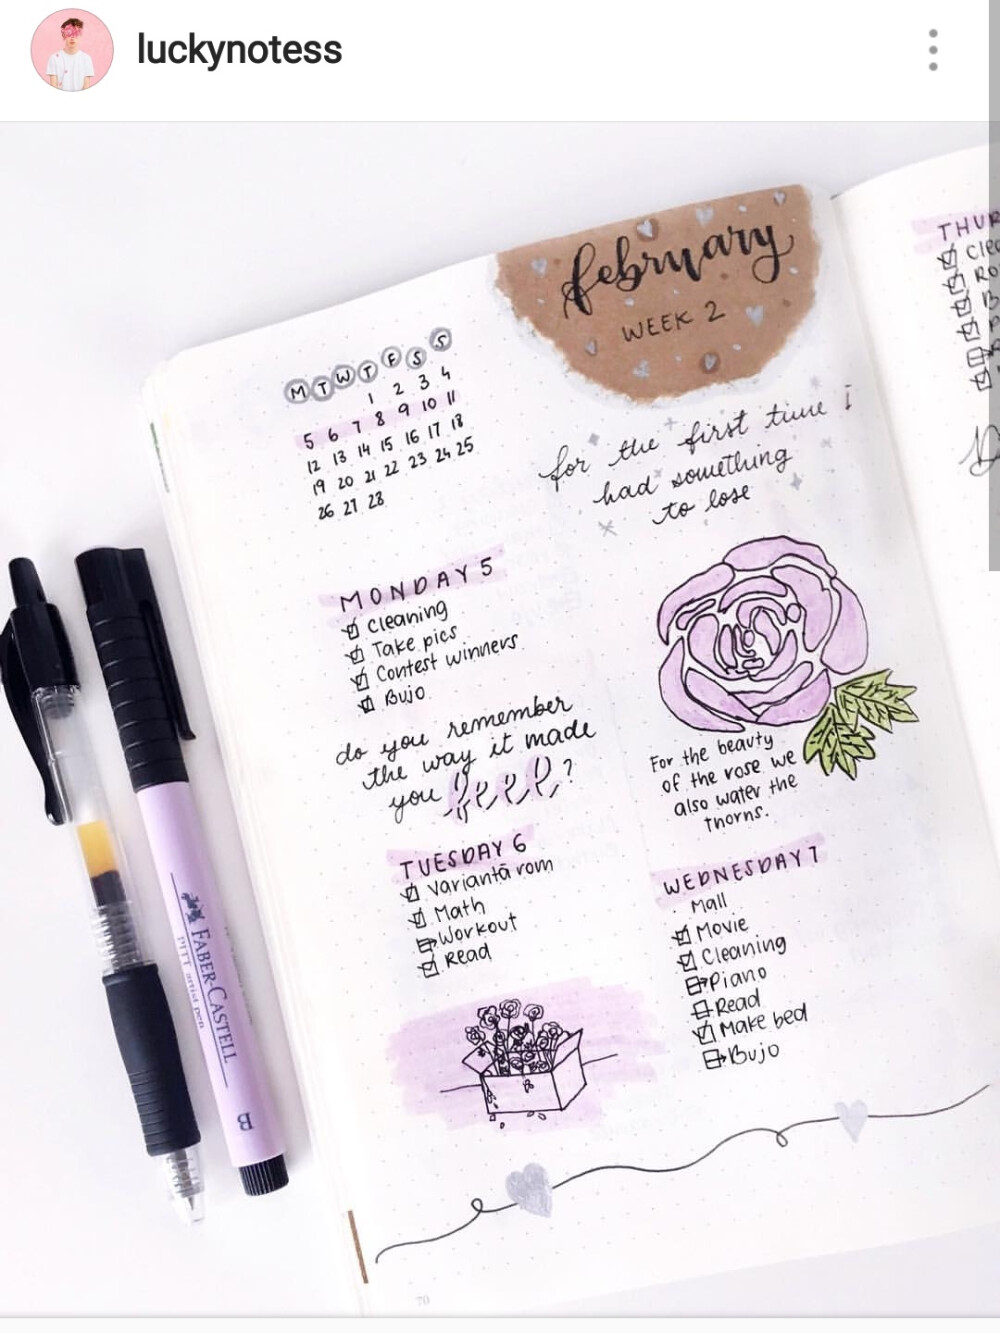 luckynotess
february
WEEK 2
M T W T F S S
1 2 3 4
5 6 7 8 9 10 11
12 13 14 15 16 17 18
19 20 21 22 23 24 25
26 27 28
for the first time i
had something
to lose
MONDAY 5
Cleaning
Take pics
Contest winners
Bujo
do you remember
the way it made
you feel?
TUESDAY 6
Variantă rom
Math
Workout
Read
For the beauty
of the rose we
also water the
thorns.
WEDNESDAY 7
Mall
Movie
Cleaning
Piano
Read
Make bed
Bujo
THUR
Clea
Ro
B
FABER-CASTELL
PITT artist pen
B
70